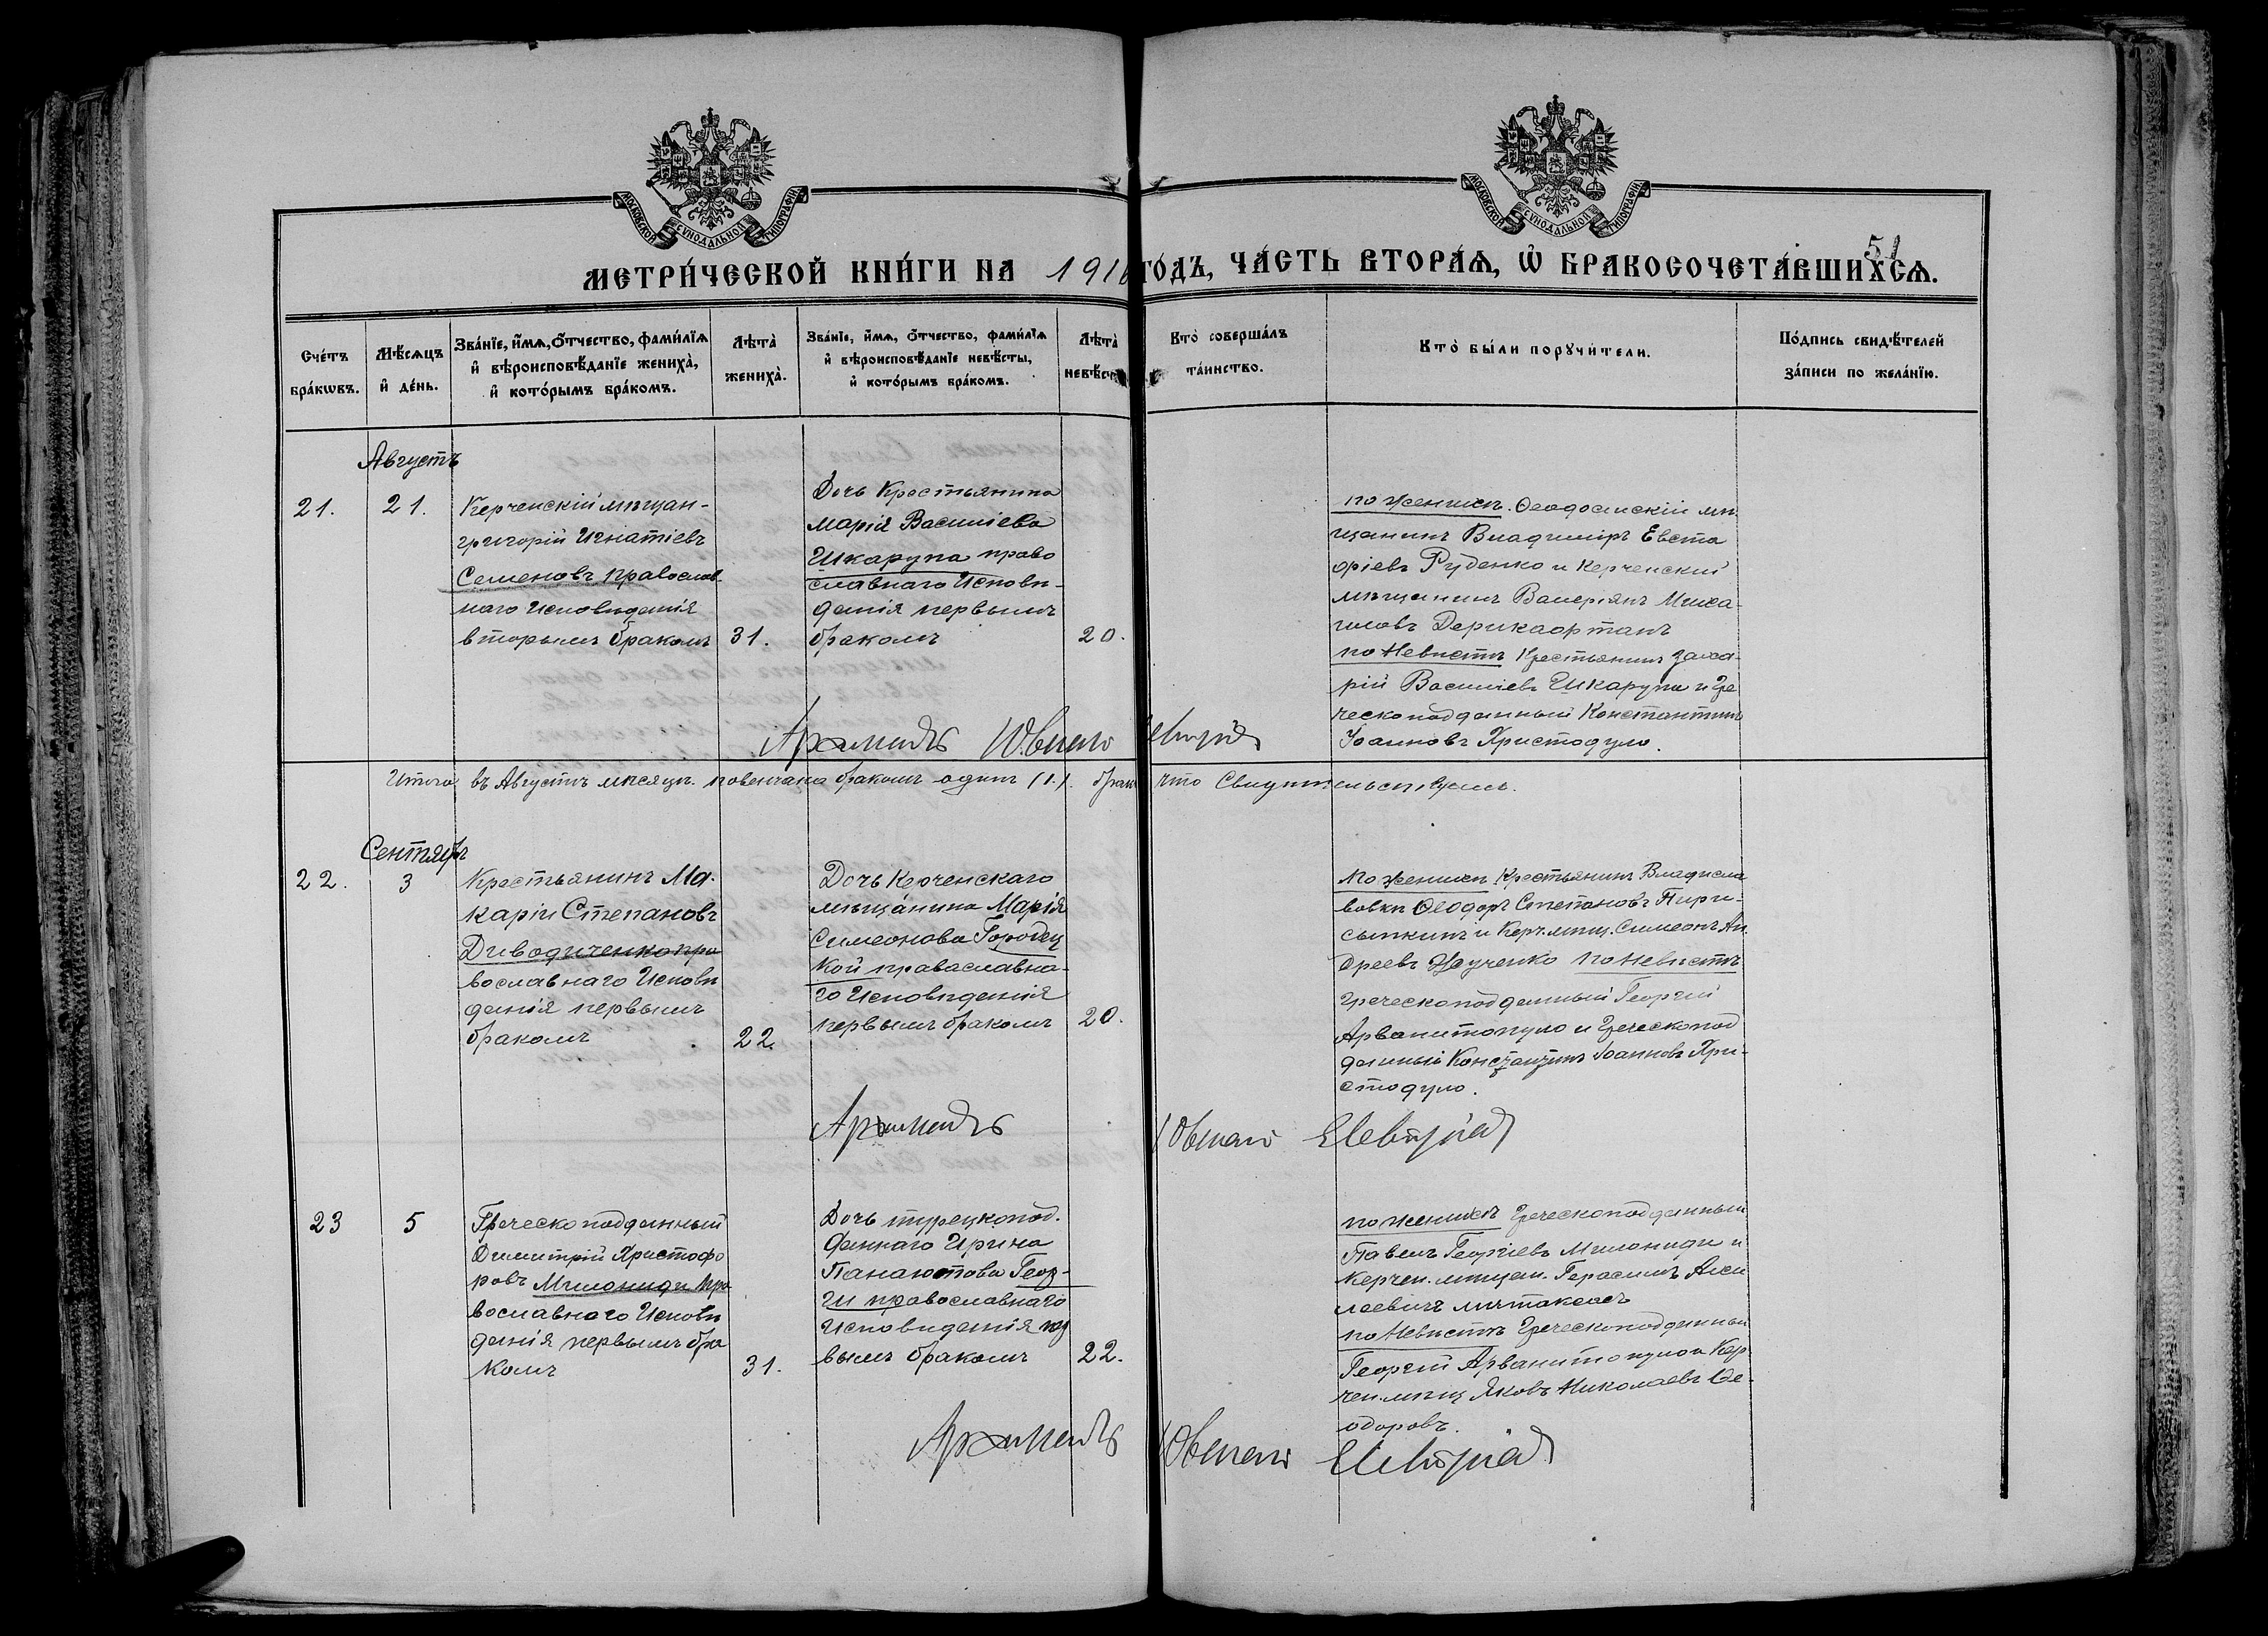 МОСКОВСКОЙ СѴНОДАЛЬНОЙ ТИПОГРАФІИ
МОСКОВСКОЙ СѴНОДАЛЬНОЙ ТИПОГРАФІИ
51
МЕТРИ́ЧЕСКОЙ КНИ́ГИ НА 1916 ГО́ДЪ, ЧА́СТЬ ВТОРА́Ѧ, Ѡ҆ БРАКОСОЧЕТА́ВШИХСѦ.
Сче́тъ бра́кωвъ.
Мѣ́сѧцъ и҆ де́нь.
Зва́нїе, и҆́мѧ, ѻ҆́тчество, фами́лїѧ
и҆ вѣроисповѣ́данїе жениха̀,
и҆ кото́рымъ бра́комъ.
Лѣта̀ жениха̀.
Зва́нїе, и҆́мѧ, ѻ҆́тчество, фами́лїѧ
и҆ вѣроисповѣ́данїе невѣ́сты,
и҆ кото́рымъ бра́комъ.
Лѣта̀ невѣ́ст
Кто̀ соверша́лъ
та́инство.
Кто̀ бы́ли порꙋчи́тели.
По́дпись свидѣ́телей
за́писи по жела́нїю.
Августъ
21.
21.
Керченскій мѣщан-
Григорій Игнатіевъ
Семеновъ православ-
наго Исповѣданія
вторымъ бракомъ
31.
Дочь Крестьянина
Марія Василіева
Шкарупа право
славнаго Исповѣ-
данія первымъ
бракомъ
20.
по женихѣ. Ѳеодосійскій мѣ
щанинъ Владиміръ Евста
фіевъ Руденко и Керченскій
мѣщанинъ Валеріянъ Миха-
иловъ Дерикаортанъ
по Невѣстѣ Крестьянинъ Заха-
рій Василіевъ Шкарупа и Гре
ческоподданный Константинъ
Іоанновъ Христодуло.
Архимандр
Итого въ Августѣ мѣсяцѣ повенчано бракомъ одинъ (1.) бракъ что Свидѣтельствуемъ.
Сентябр
22.
3
Крестьянинъ Ма-
карій Степановъ
Диводиченко пра
вославнаго Исповѣ
данія первымъ
бракомъ
22.
Дочь Керченскаго
мѣщанина Марія
Симеонова Городец
кой православна-
го Исповѣданія
первымъ бракомъ
20.
По женихѣ Крестьянинъ Владисла
вовки Ѳеодоръ Степановъ Пири-
сыпкинъ и Керч. мѣщ. Симеонъ Ан
дреевъ Наученко по Невѣстѣ
Греческоподданный Георгій
Арванитопуло и Греческопод
данный Константинъ Іоанновъ Хри-
стодуло.
Архимандр
23
5
Греческоподданный
Димитрій Христофо
ровъ Милониди пра
вославнаго Исповѣ
данія первымъ бра
комъ
31.
Дочь турецкопод-
даннаго Ирина
Панаютова Геор-
ги православнаго
Исповѣданія пер
вымъ бракомъ
22.
по женихѣ Греческоподданный
Павелъ Георгіевъ Милониди и
Керчен. мѣщан. Герасимъ
по Невѣстѣ Греческоподданный
Георгій Арванитопуло и Кер-
чен. мѣщ Яковъ Николаевъ Ѳе-
одоровъ.
Архимандр